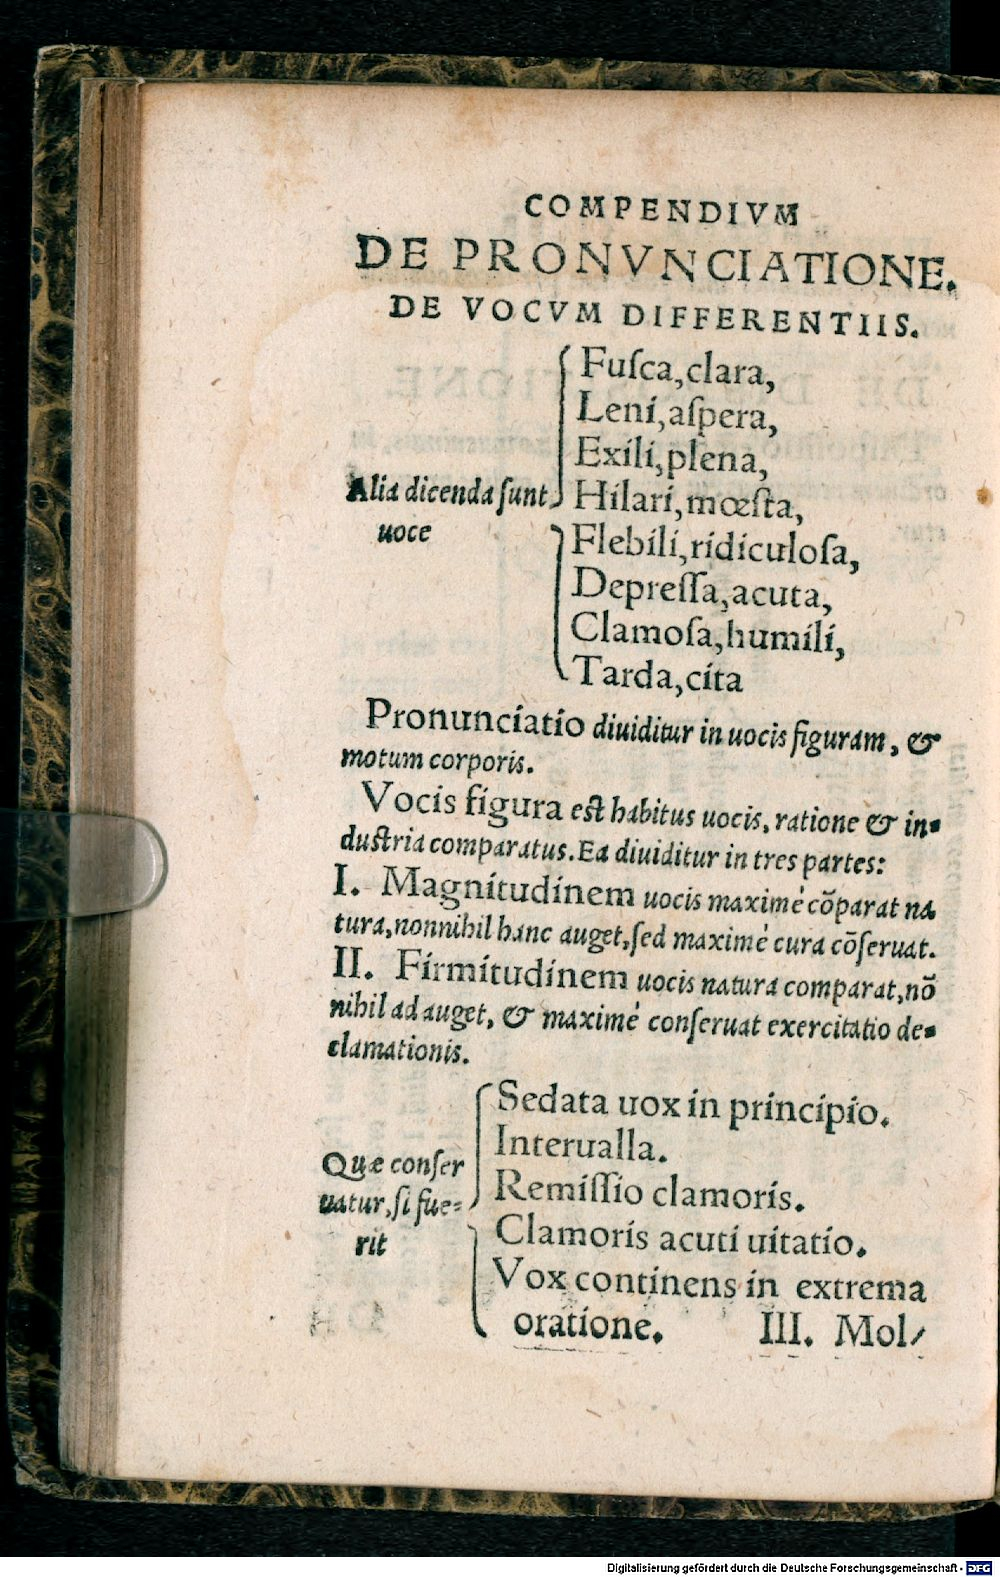 COMPENDIVM
DE PRONVNCIATIONE.
DE VOCVM DIFFERENTIIS.
Fuſca, clara,
Leni, aſpera,
Exili, plena,
Alia dicenda ſunt
uoce
Hilari, mœſta,
Flebili, ridiculoſa,
Depreſſa, acuta,
Clamoſa, humili,
Tarda, cita
Pronunciatio diuiditur in uocis figuram, &
motum corporis.
Vocis figura eſt habitus uocis, ratione & in=
duſtria comparatus. Ea diuiditur in tres partes:
I. Magnitudinem uocis maximè cõparat na
tura, nonnihil hanc auget, ſed maximè cura cõſeruat.
II. Firmitudinem uocis natura comparat, nõ
nihil ad auget, & maximè conſeruat exercitatio de=
clamationis.
Sedata uox in principio.
Interualla.
Quæ conſer
uatur, ſi fue=
rit
Remiſſio clamoris.
Clamoris acuti uitatio.
Vox continens in extrema
oratione. III. Mol/
Digitalisierung gefördert durch die Deutsche Forschungsgemeinschaft - DFG